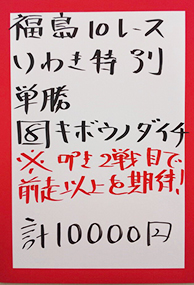 福島10レース
いわき特別
単勝
⑧キボウノダイチ
※叩き2戦目で
前走以上を期待!
計10000円